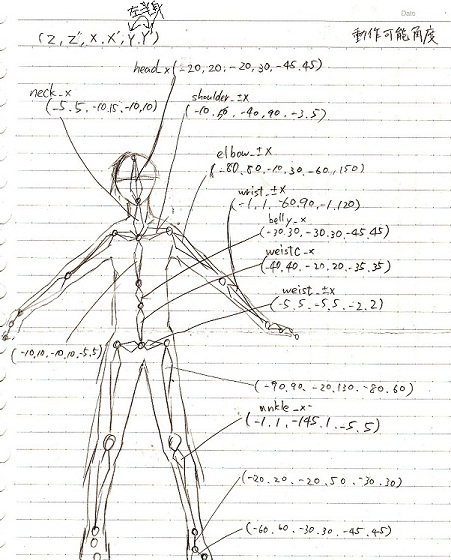 左半身
Date
(Z, Z', X, X', Y, Y')
動作可能角度
head_x (-20, 20, -20, 30, -45, 45)
neck_x
(-5.5, -10.15, -10,10)
shoulder_±x
-40, 90, -3.5)
elbow_±x
(-80, 80, -10, 30, -60, 150)
wrist_±x
(-1, 1, -60, 90, -1, 120)
belly_x
(-30, 30, -30, 30, -45, 45)
weistC_x
(-40, 40, -20, 20, -35, 35)
weist_±x
(-5.5, -5.5, -2.2)
(-10,10, -10,10, -5.5)
(-90, 90, -20, 130, -80, 60)
(-1, 1, -145, 1, -5.5)
(-20, 20, -20, 50, -30, 30)
(-60, 60, -30, 30, -45, 45)